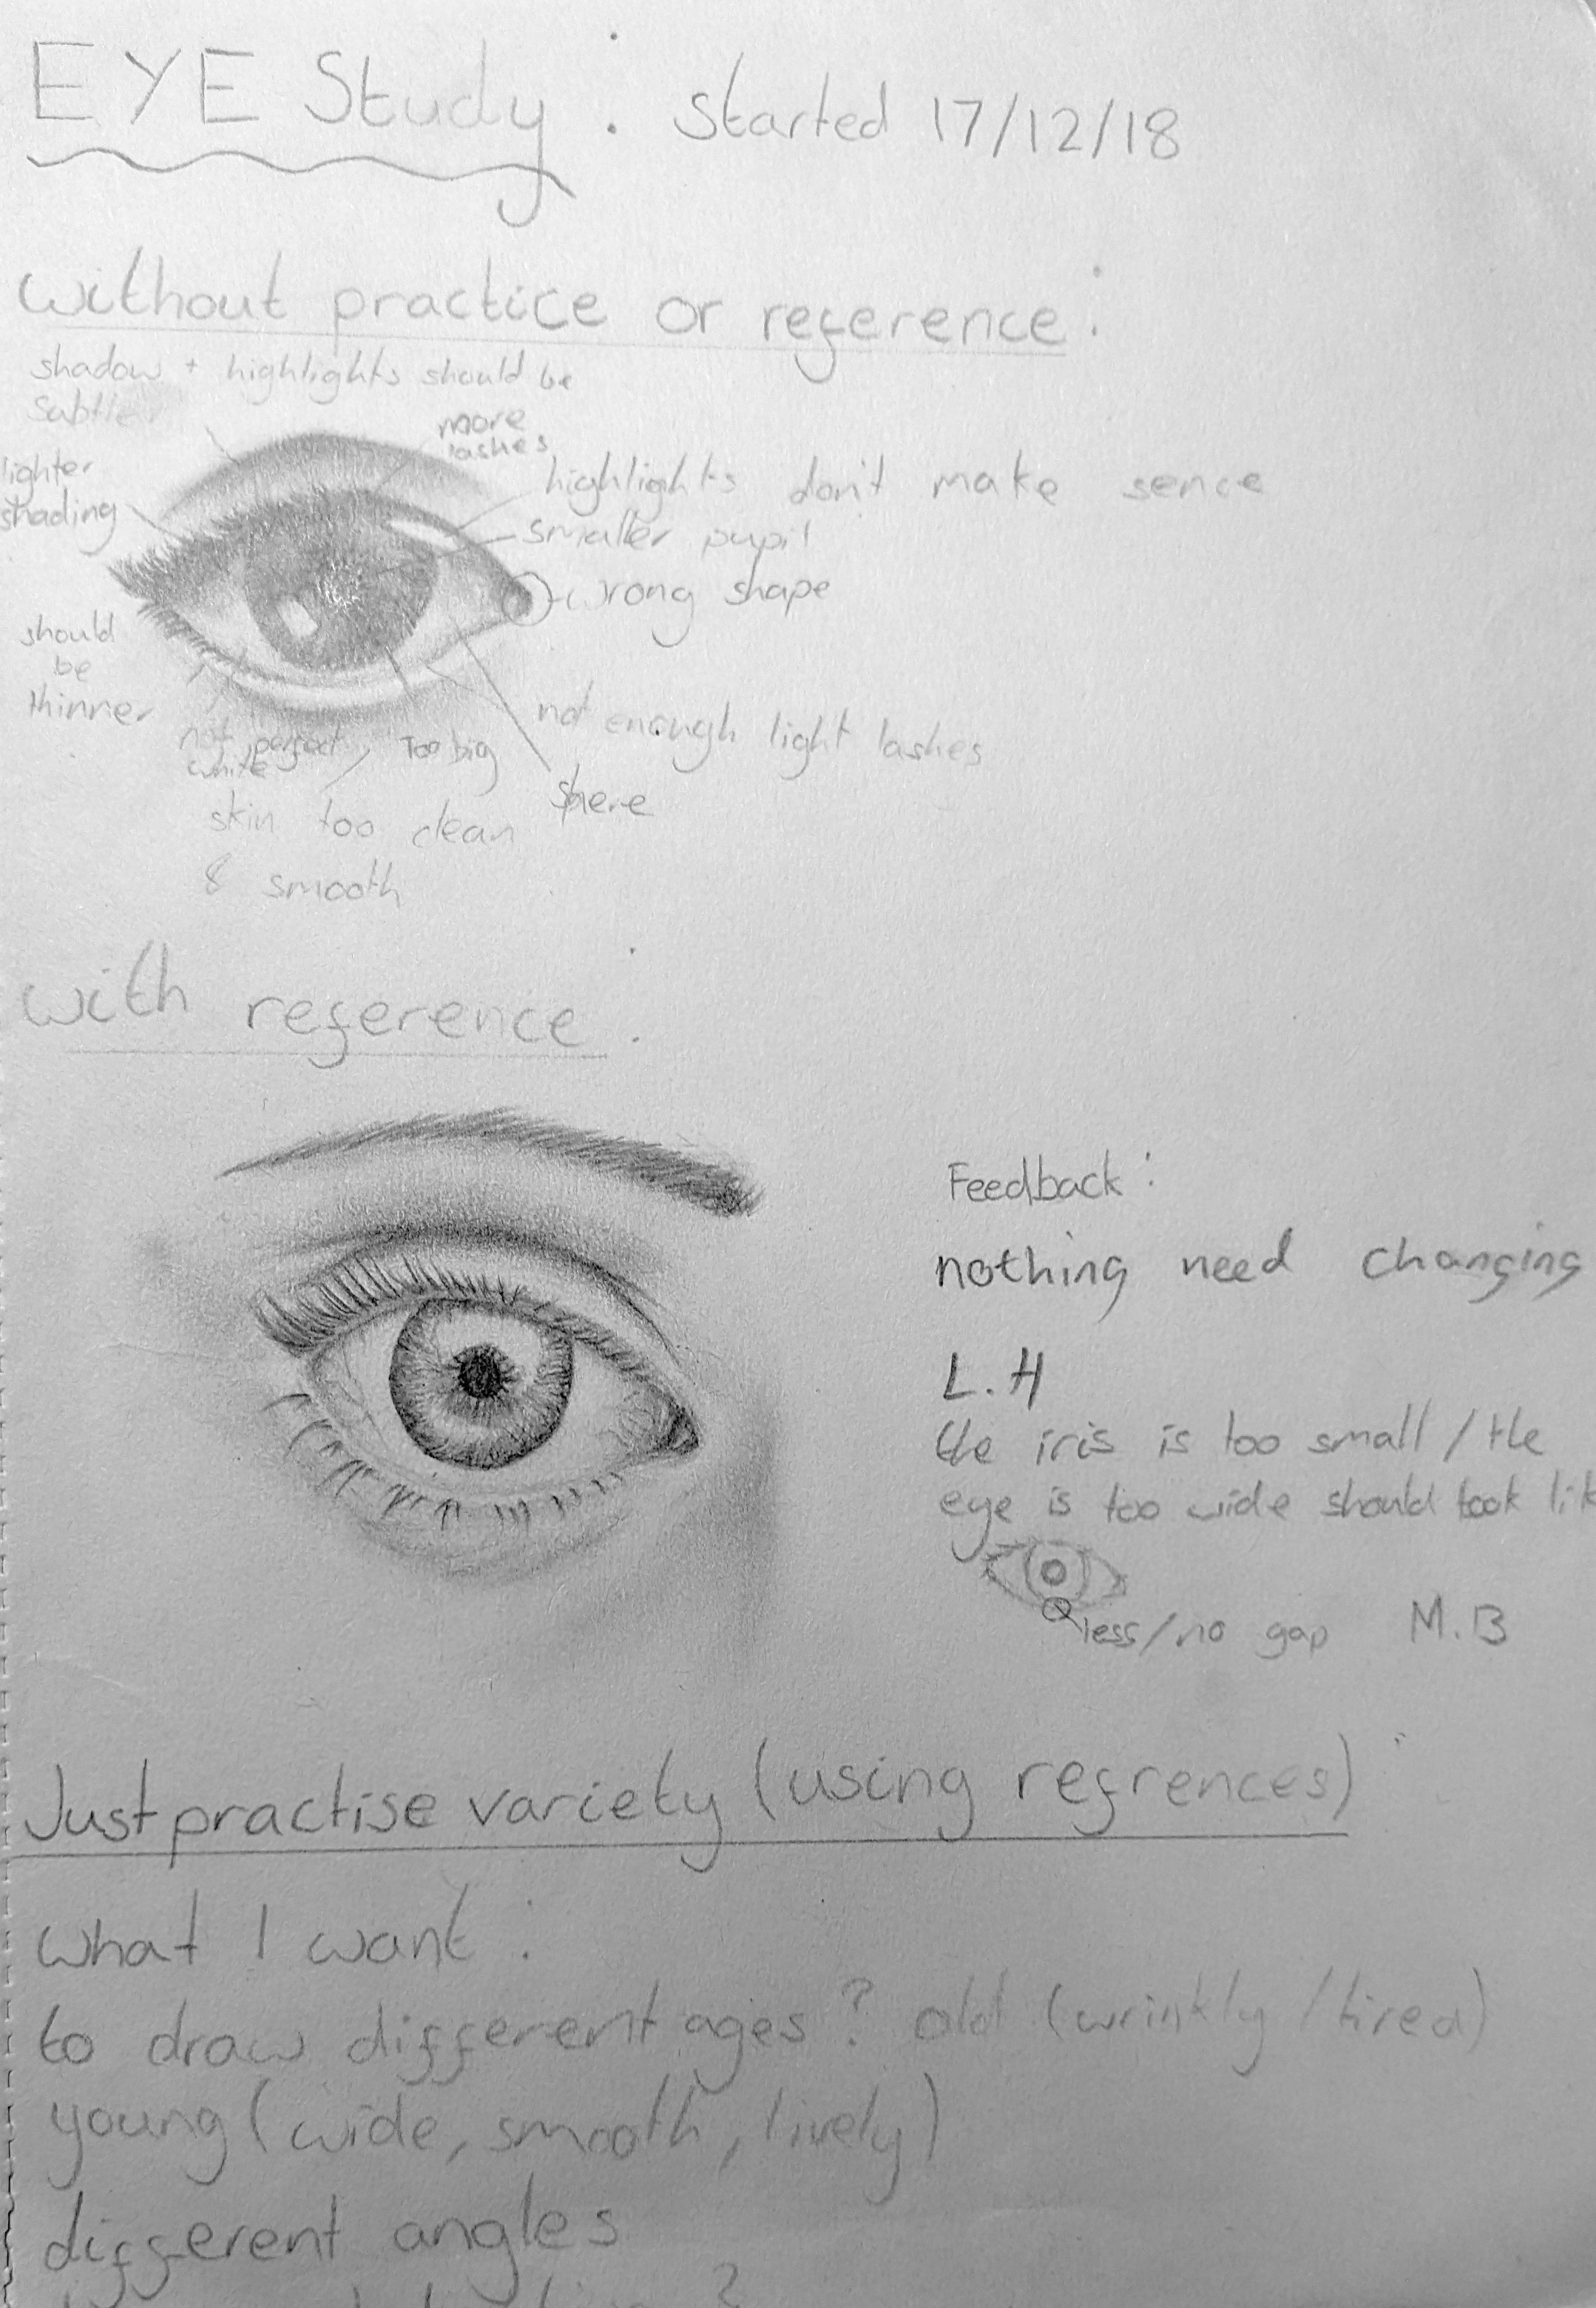 EYE Study : Started 17/12/18
without practice or reference :
shadow + highlights should be
subtler
more
lashes
lighter
shading
highlights don't make sence
smaller pupil
wrong shape
should
be
thinner
not perfect
white
Too big
not enough light lashes
skin too clean
& smooth
with reference :
Feedback :
nothing need changing
L.H
the iris is too small / the
eye is too wide should look lik
less/no gap M.B
Just practise variety (using refrences) :
what I want :
to draw different ages ? old (wrinkly / tired)
young (wide, smooth, lively)
different angles